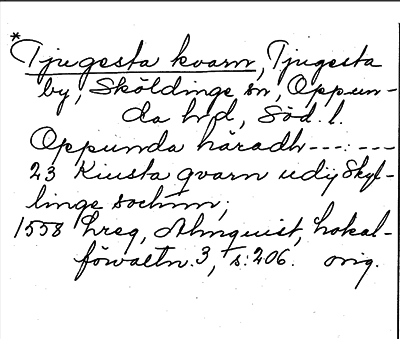 *
Tjugesta kvarn, Tjugesta
by, Sköldinge sn, Oppun-
da hd, Söd. l.
Oppunda häradh---:---
23 Kiusta qvarn udij Skyl-
linge sochnn;
1558 hreg, Almquist, Lokal-
förvaltn. 3, s. 206. orig.